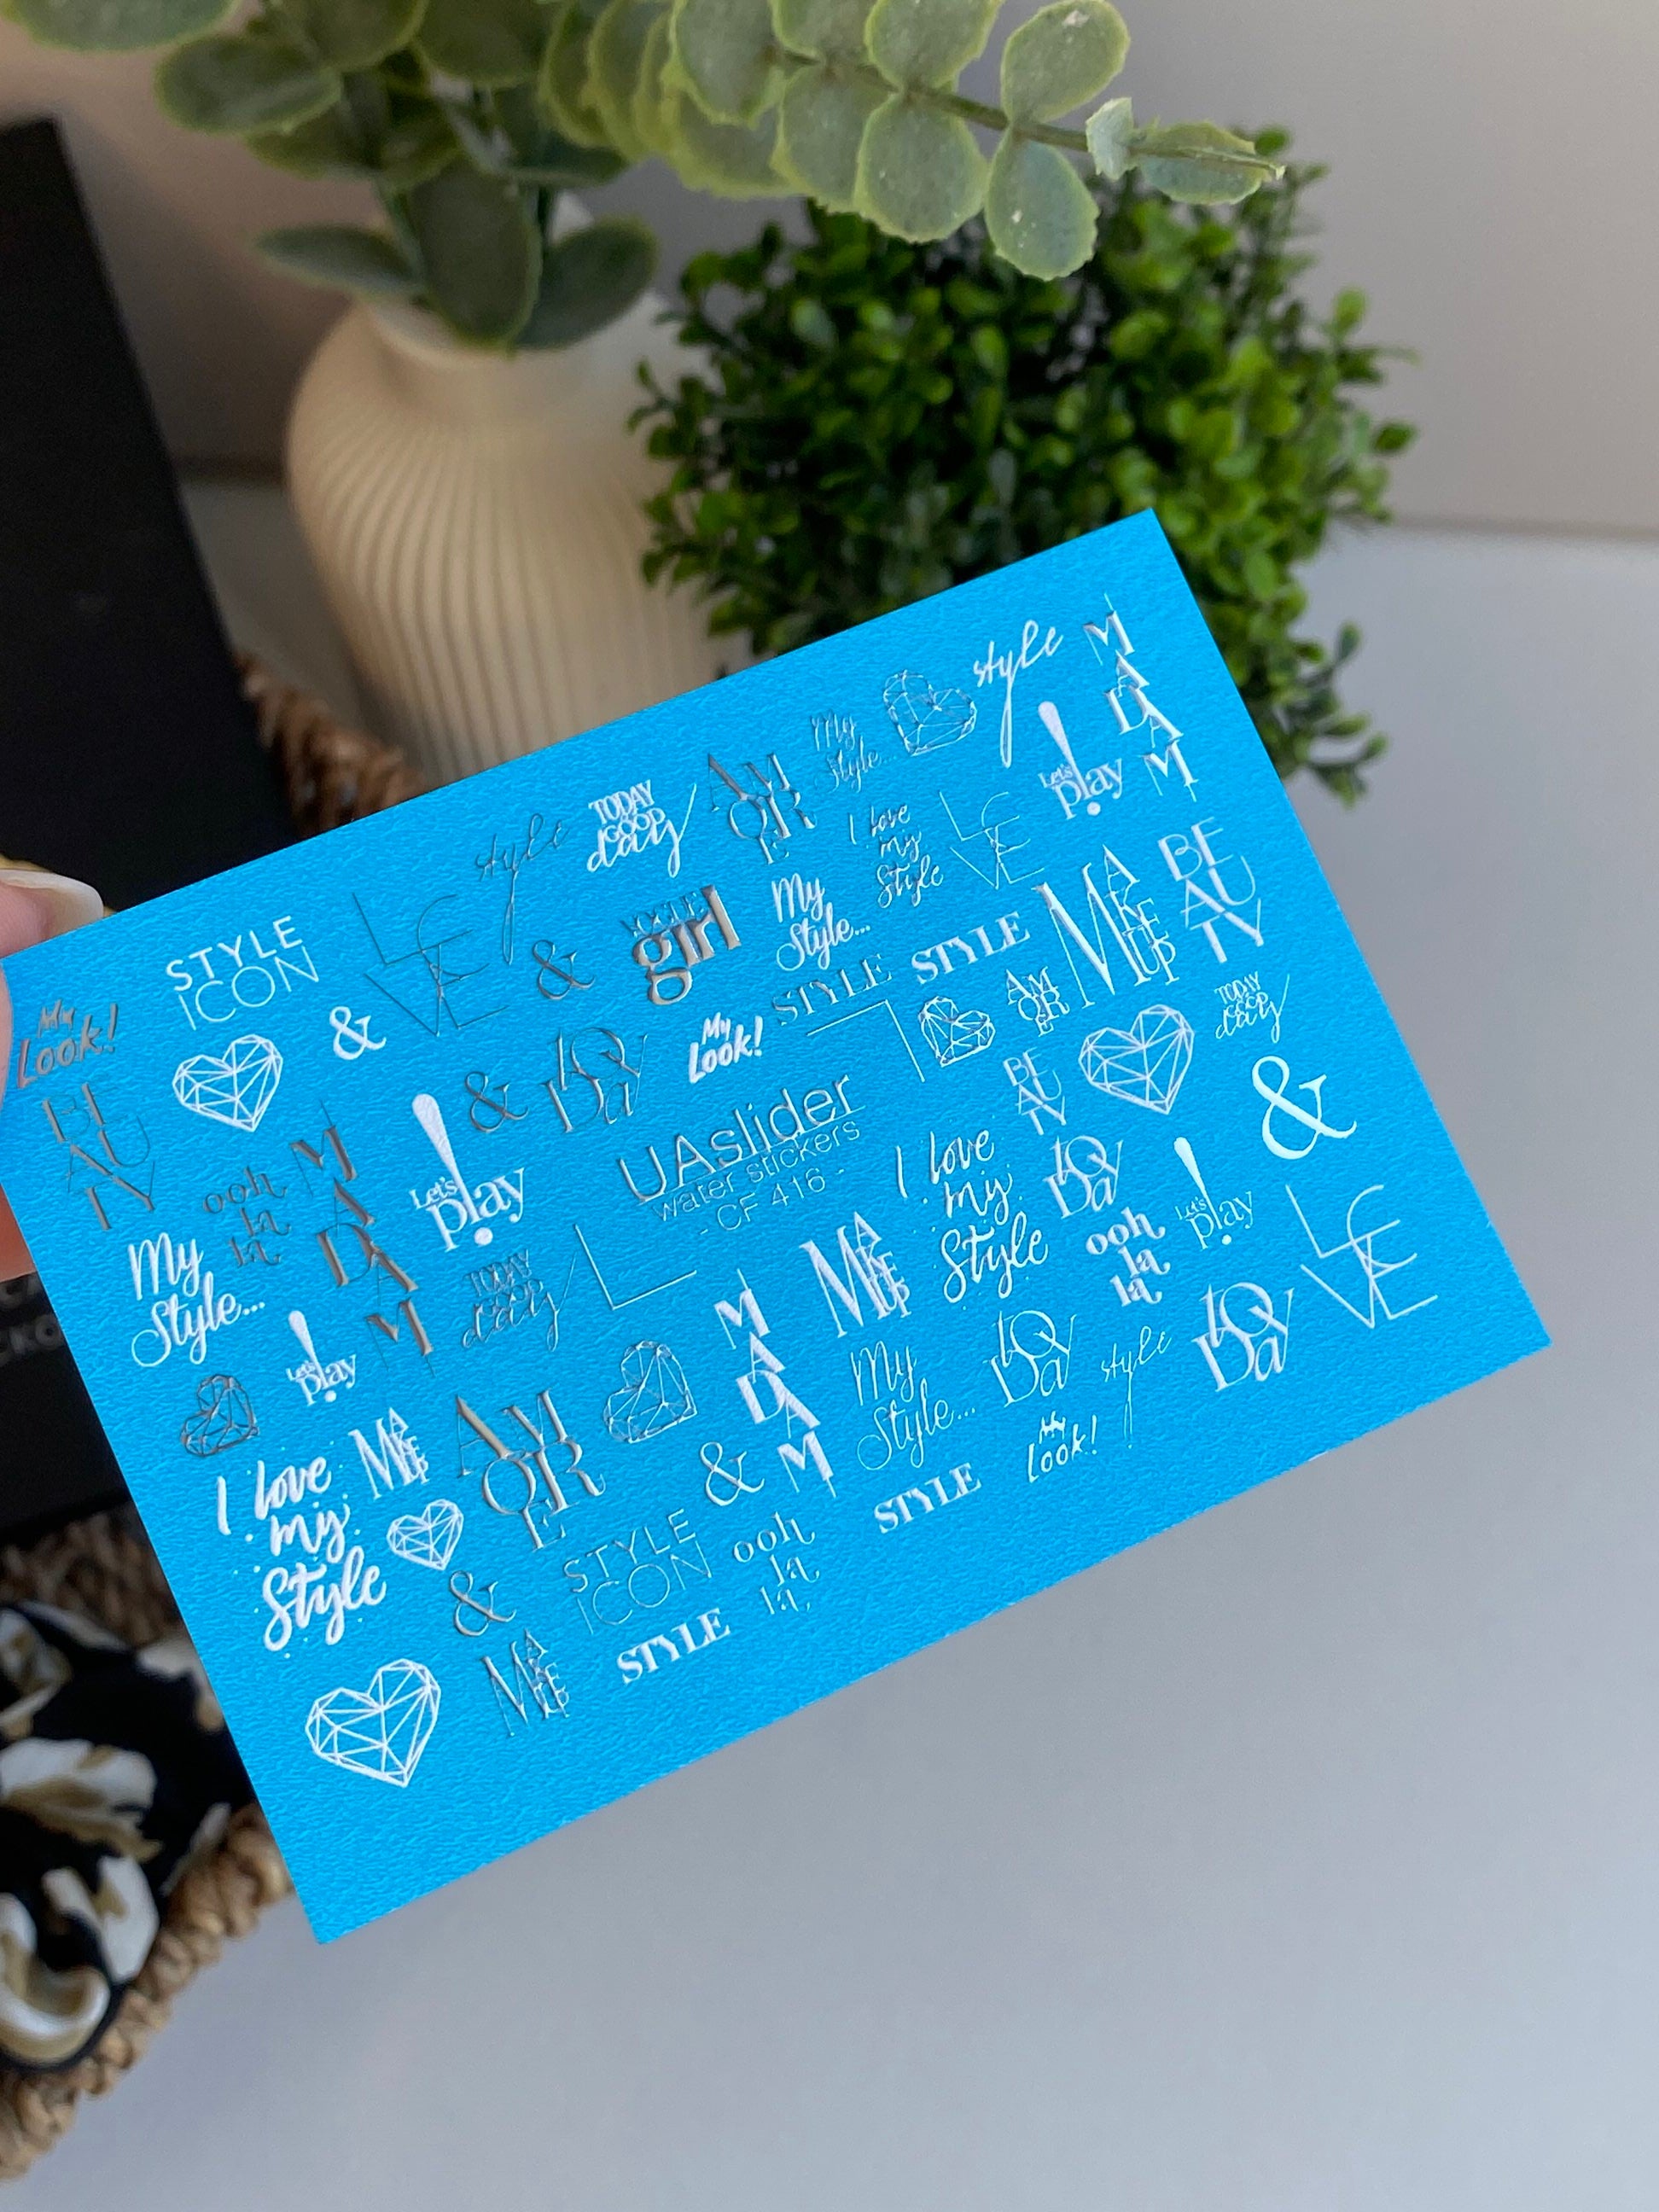 style
MADAM
My
Style...
Let's
play
AMORE
TODAY
GOOD
day
style
I love
my
Style
LOVE
BEAUTY
MAKE UP
VOGUE
girl
My
Style...
STYLE
STYLE
STYLE
ICON
LOVE
&
&
My
Look!
AMORE
TODAY
GOOD
day
My
Look!
BEAUTY
&
BEAUTY
&
Let's
play
UAslider
water stickers
- CF 416 -
I love
my
Style
ooh
la
la
MADAM
My
Style...
TODAY
GOOD
day
MAKE UP
ooh
la
la
Let's
play
LOVE
Let's
play
MADAM
My
Style...
style
I love
my
Style
MAKE UP
AMORE
&
My
Look!
STYLE
&
STYLE
ICON
ooh
la
la
MAKE UP
STYLE